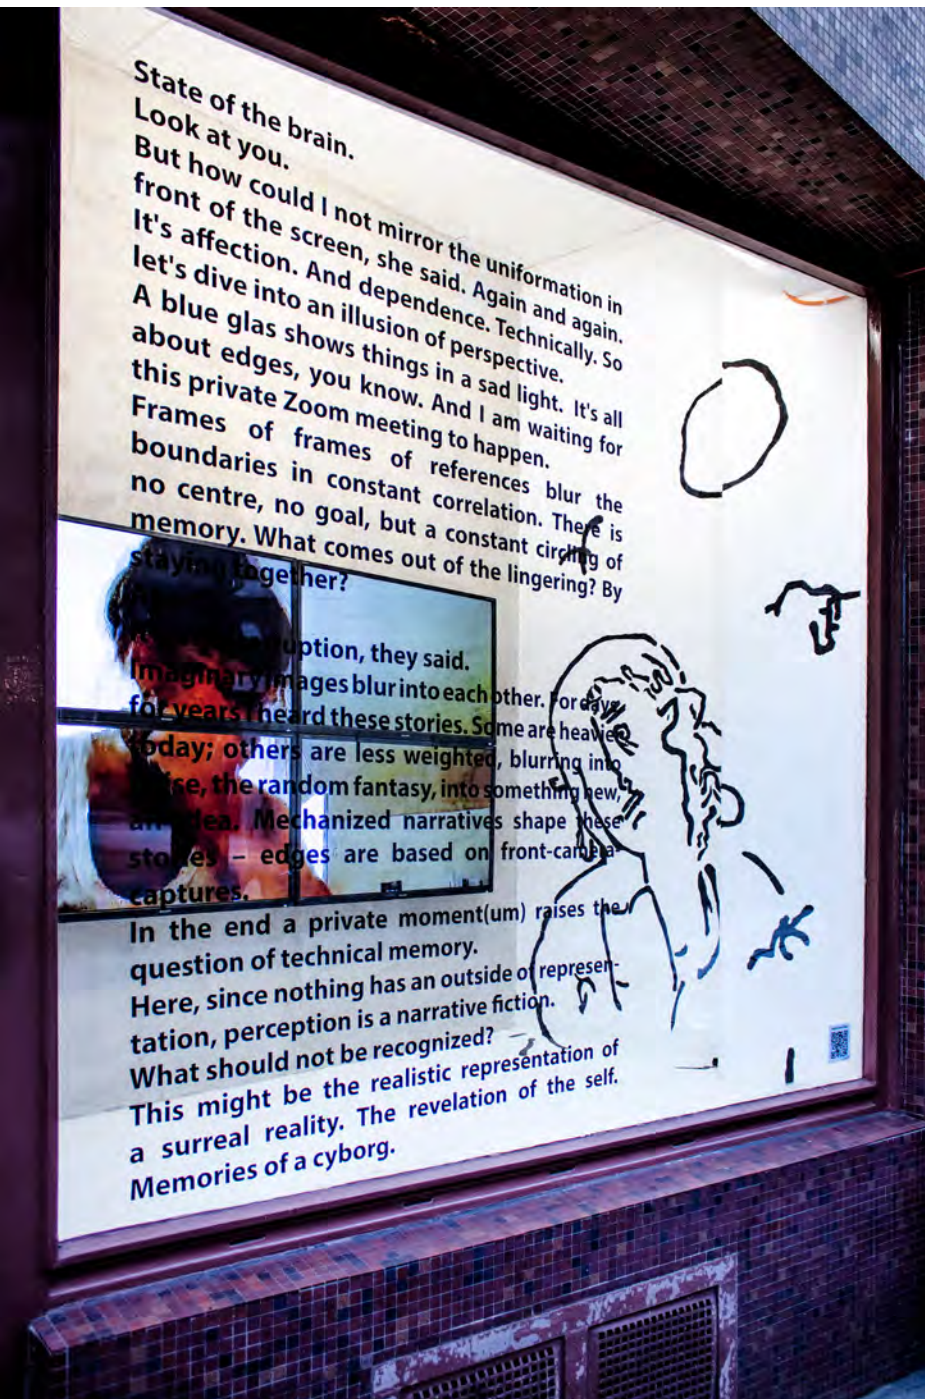 State of the brain.
Look at you.
But how could I not mirror the uniformation in
front of the screen, she said. Again and again.
It's affection. And dependence. Technically. So
let's dive into an illusion of perspective.
A blue glas shows things in a sad light. It's all
about edges, you know. And I am waiting for
this private Zoom meeting to happen.
Frames of frames of references blur the
boundaries in constant correlation. There is
no centre, no goal, but a constant circling of
memory. What comes out of the lingering? By
staying together?
they said.
Imaginary images blur into each other. For days,
for years I heard these stories. Some are heavier
today; others are less weighted, blurring into
the random fantasy, into something new,
an idea. Mechanized narratives shape these
stories – edges are based on front-camera-
captures.
In the end a private moment(um) raises the
question of technical memory.
Here, since nothing has an outside of represen-
tation, perception is a narrative fiction.
What should not be recognized?
This might be the realistic representation of
a surreal reality. The revelation of the self.
Memories of a cyborg.